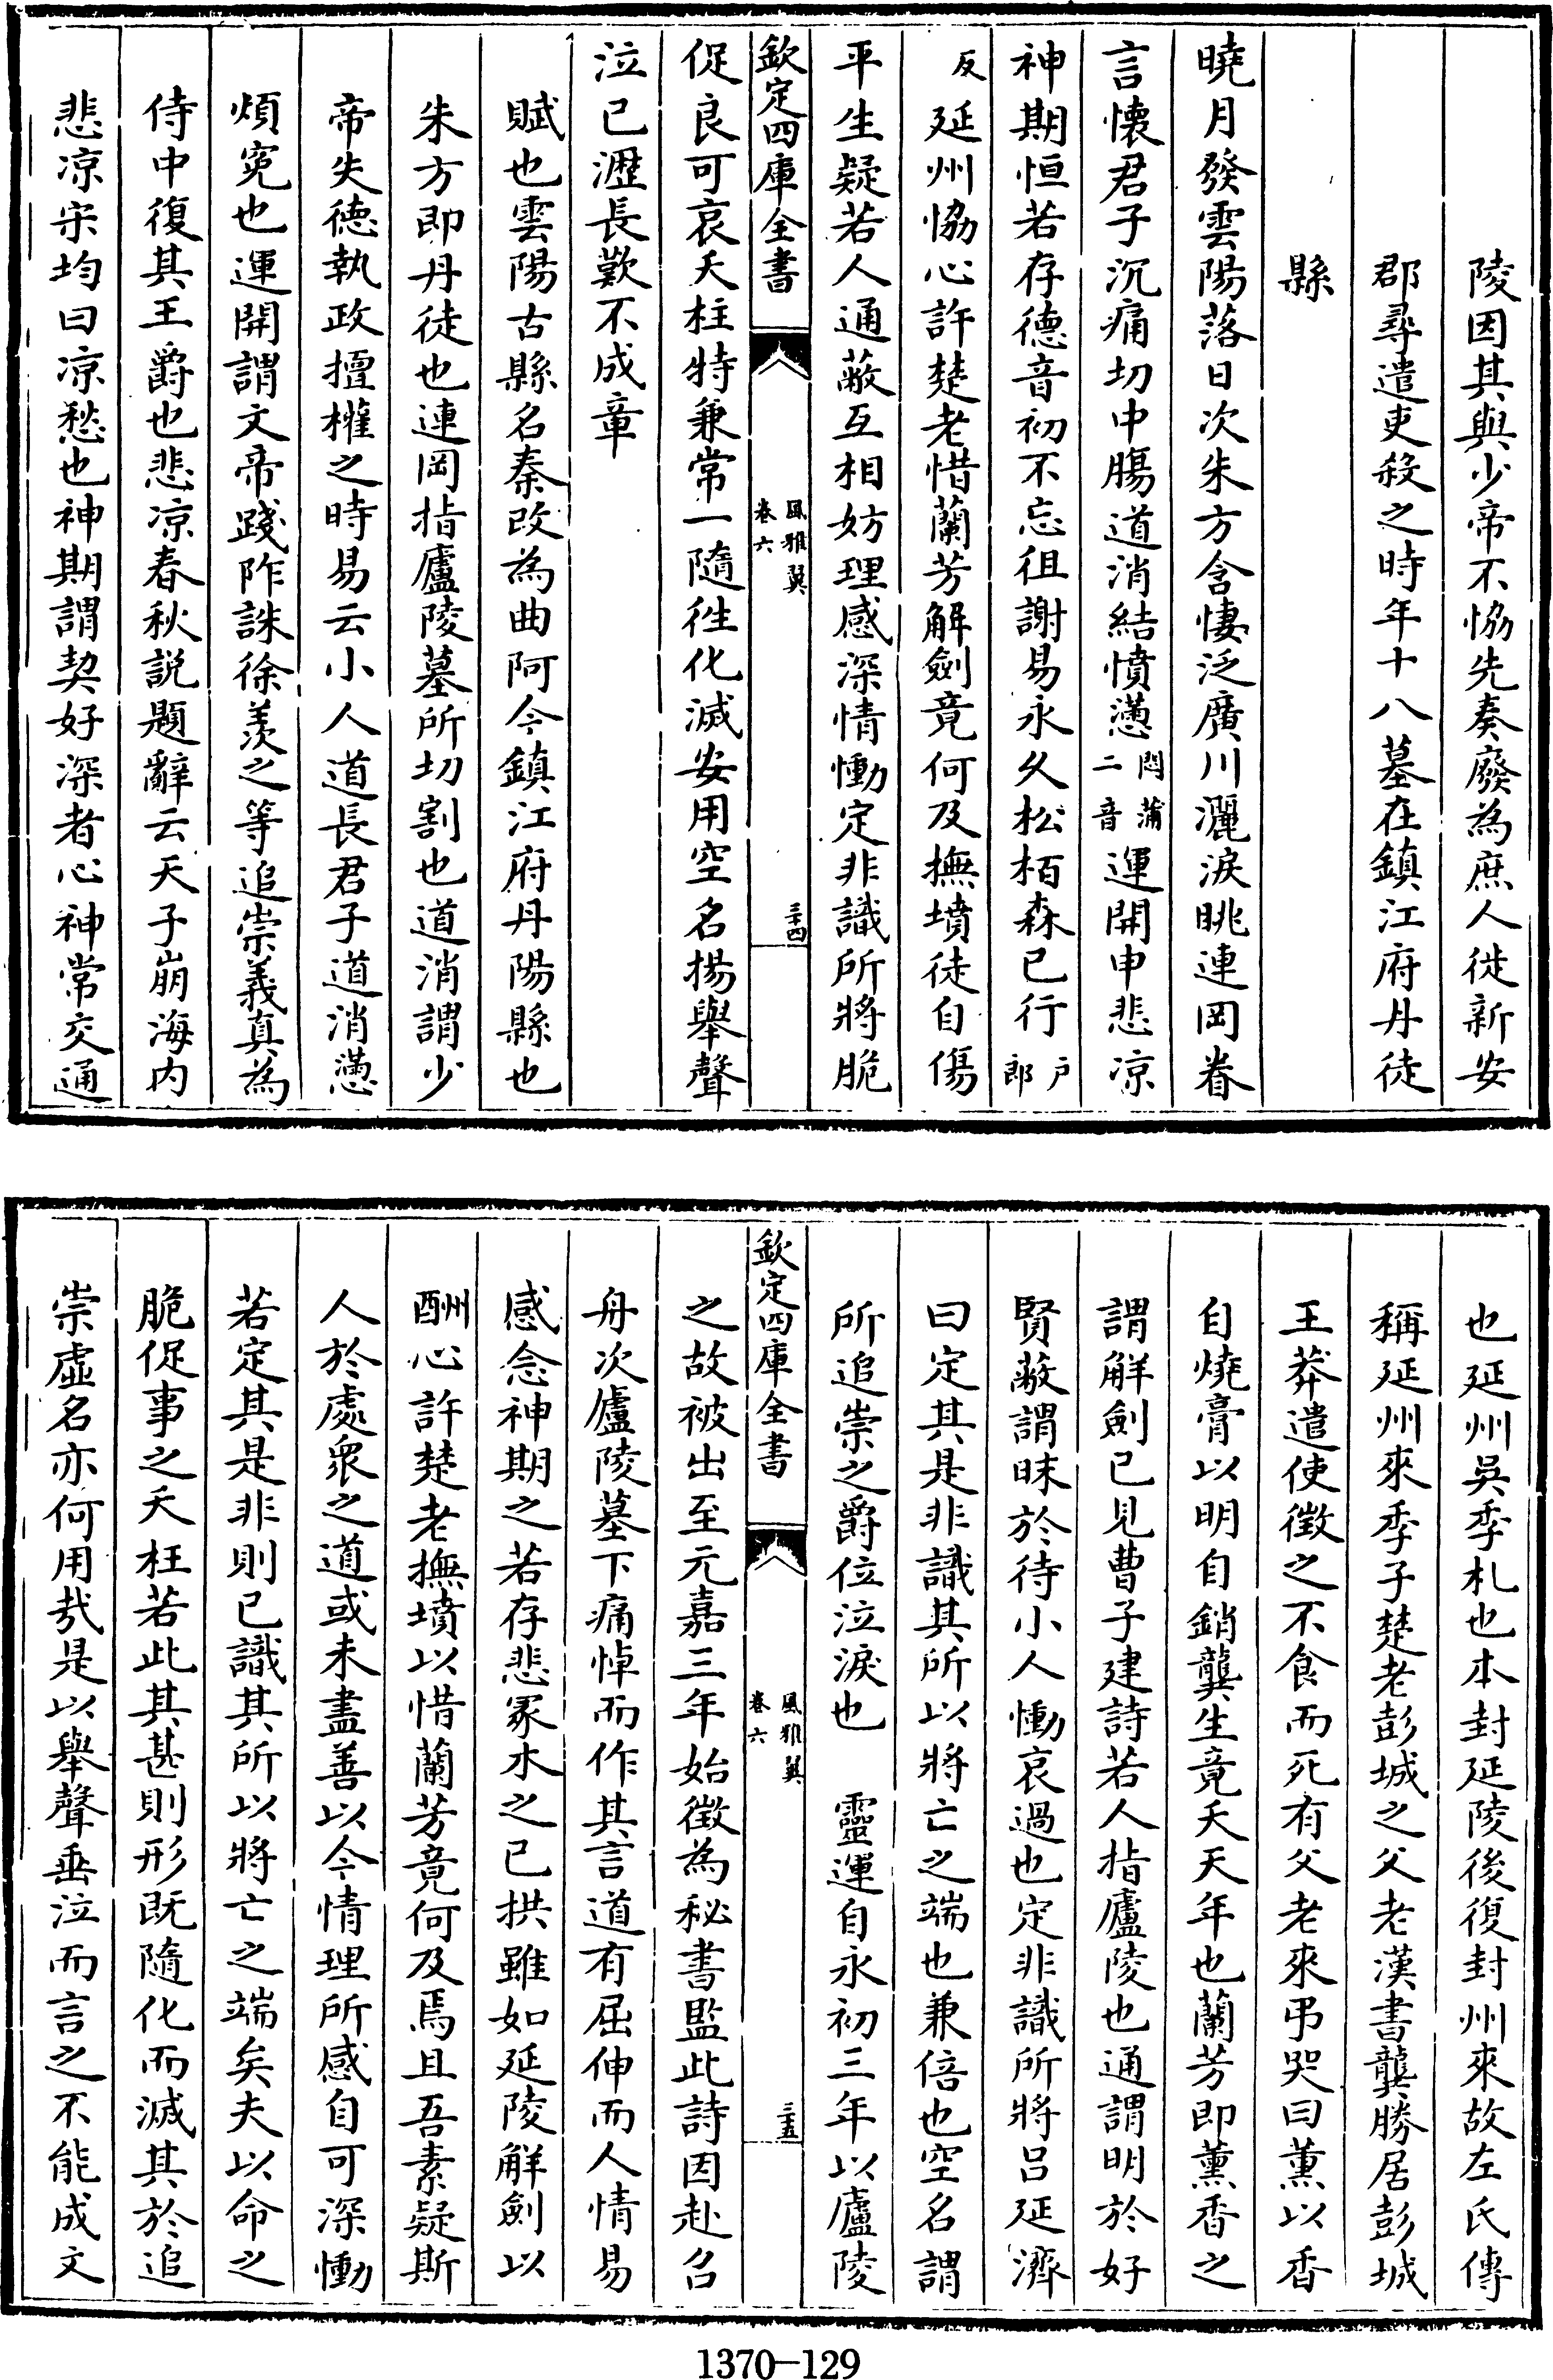 陵因其與少帝不恊先奏廢為庶人徙新安
郡尋遣吏殺之時年十八墓在鎮江府丹徒
縣
曉月發雲陽落日次朱方含悽泛廣川灑淚眺連岡眷
言懷君子沉痛切中腸道消結憤懣悶蒲二音運開申悲凉
神期恒若存德音初不忘徂謝易永久松栢森已行户郎
反延州恊心許楚老惜蘭芳解劍竟何及撫墳徒自傷
平生疑若人通蔽互相妨理感深情慟定非識所將脆
欽定四庫全書
風雅翼
卷六
三十四
促良可哀夭枉特兼常一隨徃化滅安用空名揚舉聲
泣已瀝長歎不成章
賦也雲陽古縣名秦改為曲阿今鎮江府丹陽縣也
朱方即丹徒也連岡指廬陵墓所切割也道消謂少
帝失德執政擅權之時易云小人道長君子道消懣
煩寃也運開謂文帝踐阼誅徐羨之等追崇義真為
侍中復其王爵也悲凉春秋説題辭云天子崩海内
悲凉宋均曰凉愁也神期謂契好深者心神常交通
也延州吳季札也本封延陵後復封州來故左氏傳
稱延州來季子楚老彭城之父老漢書龔勝居彭城
王莽遣使徵之不食而死有父老來弔哭曰薰以香
自燒膏以明自銷龔生竟夭天年也蘭芳即薰香之
謂解劍已見曹子建詩若人指廬陵也通謂明於好
賢蔽謂昧於待小人慟哀過也定非識所將吕延濟
曰定其是非識其所以將亡之端也兼倍也空名謂
所追崇之爵位泣淚也　靈運自永初三年以廬陵
欽定四庫全書
風雅翼
卷六
三十五
之故被出至元嘉三年始徵為秘書監此詩因赴召
舟次廬陵墓下痛悼而作其言道有屈伸而人情易
感念神期之若存悲冢木之已拱雖如延陵解劍以
酬心許楚老撫墳以惜蘭芳竟何及焉且吾素疑斯
人於處衆之道或未盡善以今情理所感自可深慟
若定其是非則已識其所以將亡之端矣夫以命之
脆促事之夭枉若此其甚則形既隨化而滅其於追
崇虛名亦何用哉是以舉聲垂泣而言之不能成文
1370—129